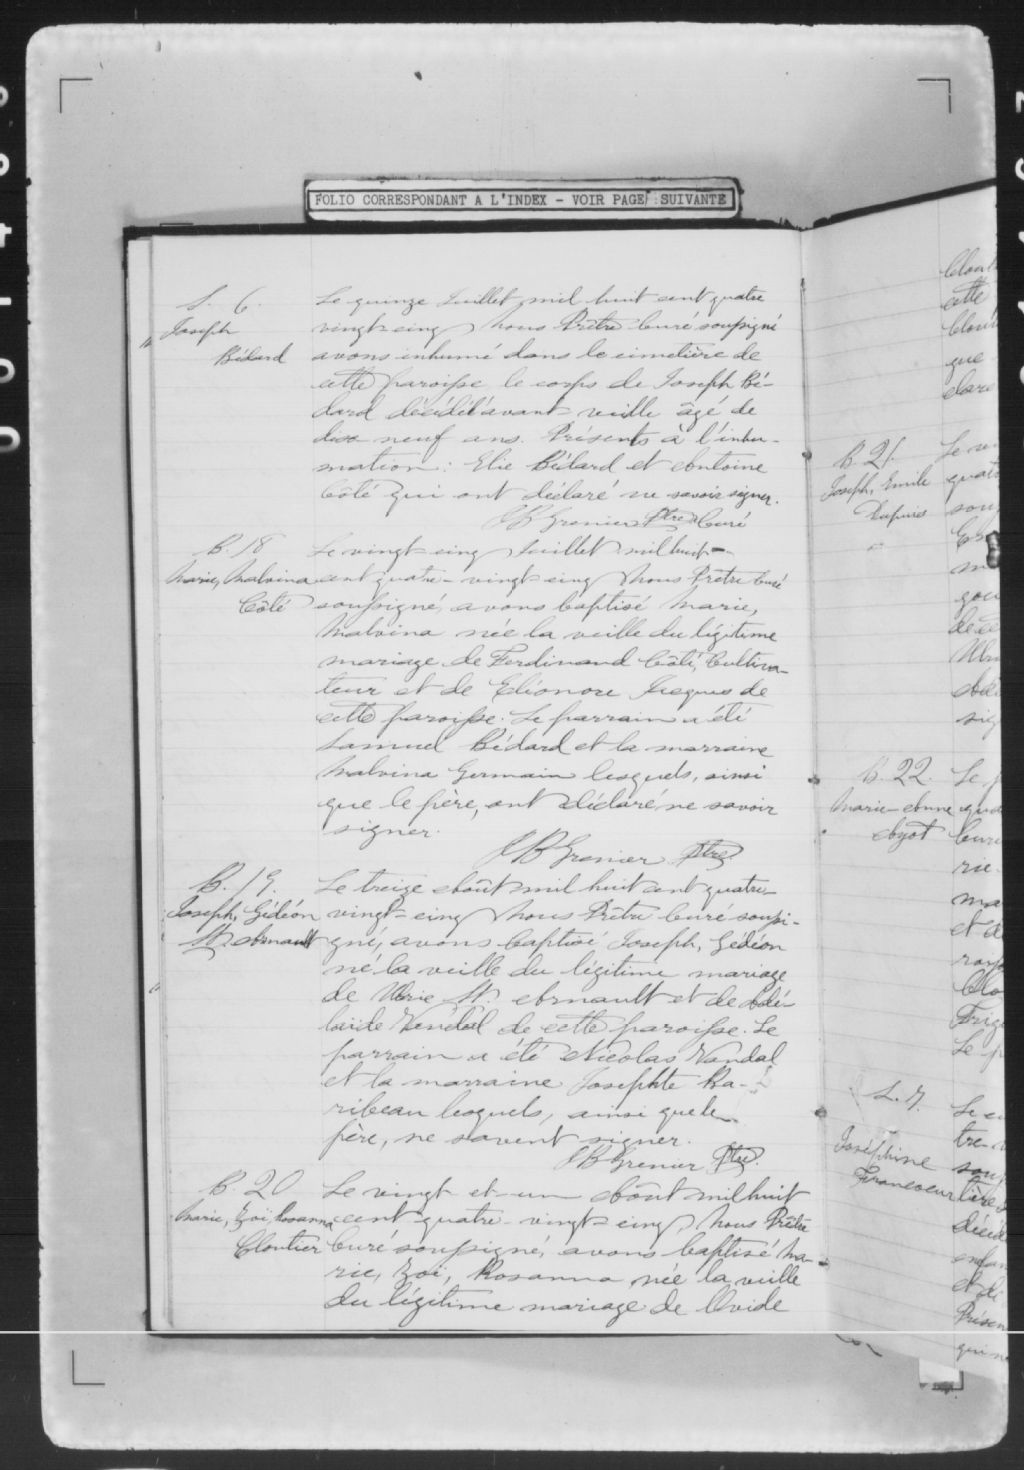 FOLIO CORRESPONDANT A L'INDEX - VOIR PAGE SUIVANTE
S. 6.
Joseph
Bédard
Le quinze Juillet mil huit cent quatre
vingt-cinq Nous Prêtre Curé soussigné
avons inhumé dans le cimetière de
cette paroisse le corps de Joseph Bé-
dard décédé l'avant veille âgé de
dix neuf ans. Présents à l'inhu-
mation : Elie Bédard et Antoine
Côté qui ont déclaré ne savoir signer.
J B Grenier Ptre Curé
B. 18
Marie, Malvina
Côté
Le vingt-cinq Juillet mil huit-
cent quatre-vingt-cinq Nous Prêtre Curé
soussigné, avons baptisé Marie,
Malvina née la veille du légitime
mariage de Ferdinand Côté, Cultiva-
teur et de Eléonore Jacques de
cette paroisse. Le parrain a été
Samuel Bédard et la marraine
Malvina Germain lesquels, ainsi
que le père, ont déclaré ne savoir
signer.
J B Grenier Ptre
B. 19.
Joseph, Gédéon
St. Arnault
Le treize Août mil huit cent quatre-
vingt-cinq Nous Prêtre Curé soussi-
gné, avons baptisé Joseph, Gédéon
né la veille du légitime mariage
de Ulric St. Arnault et de Adé-
laïde Vandal de cette paroisse. Le
parrain a été Nicolas Vandal
et la marraine Josephte Ba-
ribeau lesquels, ainsi que le
père, ne savent signer.
J B Grenier Ptre.
B. 20
Marie, Zoé, Rosanna
Cloutier
Le vingt-et-un Août mil huit
cent quatre-vingt-cinq, Nous Prêtre
Curé soussigné, avons baptisé Ma-
rie, Zoé, Rosanna née la veille
du légitime mariage de Ovide
cette
que
B. 21.
Joseph, Emile
Dupuis
B. 22.
Marie-Anne
Ayot
S. 7.
Joséphine
Francoeur